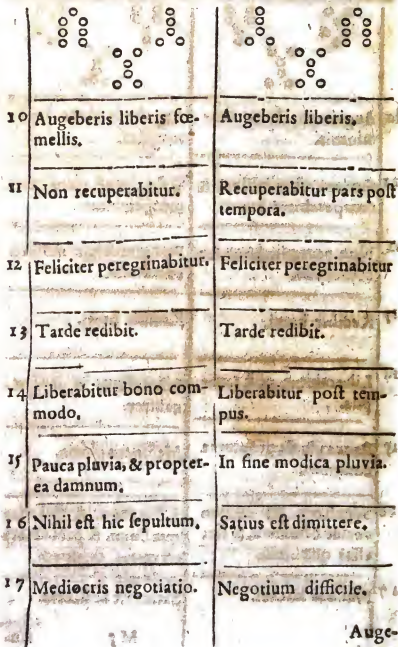 10 Augeberis liberis fœ- Augeberis liberis.
mellis.
11 Non recuperabitur. Recuperabitur pars poſt
tempora.
12 Feliciter peregrinabitur. Feliciter peregrinabitur
13 Tarde redibit. Tarde redibit.
14 Liberabitur bono com- Liberabitur poſt tem-
modo. pus.
15 Pauca pluvia, & propter- In fine modica pluvia.
ea damnum.
16 Nihil eſt hic ſepultum. Satius eſt dimittere.
17 Mediocris negotiatio. Negotium difficile.
Auge-